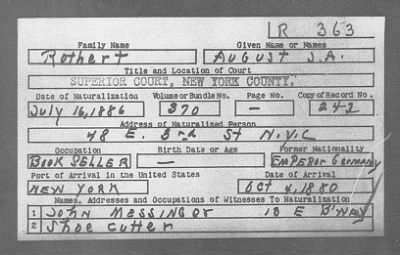 R 363
Family Name Given Name or Names
Rothert August J.A.
Title and Location of Court
SUPERIOR COURT, NEW YORK COUNTY.
Date of Naturalization Volume or Bundle No. Page No. Copy of Record No.
July 16, 1886 370 — 242
Address of Naturalized Person
48 E. 3rd St N.Y.C
Occupation Birth Date or Age Former Nationality
Book Seller — Emperor Germany
Port of Arrival in the United States Date of Arrival
New York Oct 4, 1880
Names, Addresses and Occupations of Witnesses To Naturalization
1 John Messinger 18 E B'way
2 Shoe Cutter